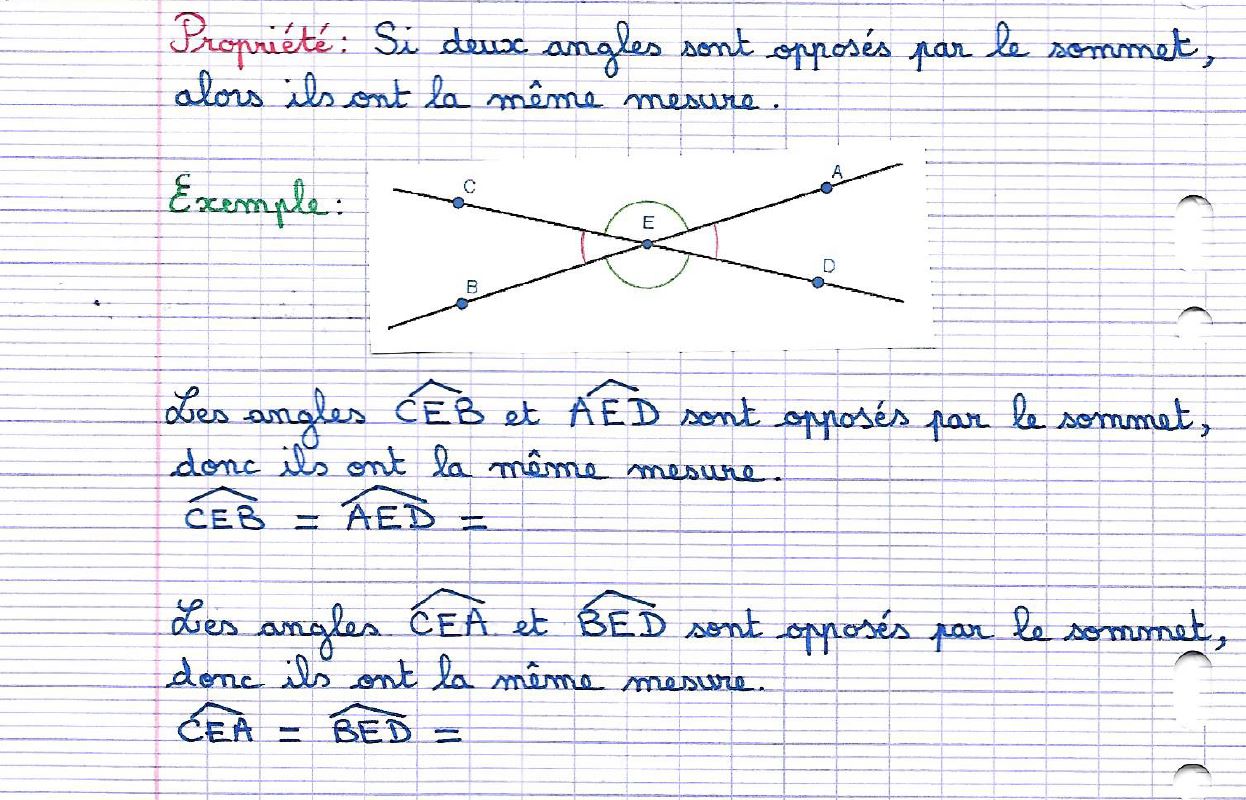 Propriété: Si deux angles sont opposés par le sommet,
alors ils ont la même mesure.
Exemple:
C
A
E
D
B
Les angles CEB et AED sont opposés par le sommet,
donc ils ont la même mesure.
CEB = AED =
Les angles CEA et BED sont opposés par le sommet,
donc ils ont la même mesure.
CEA = BED =